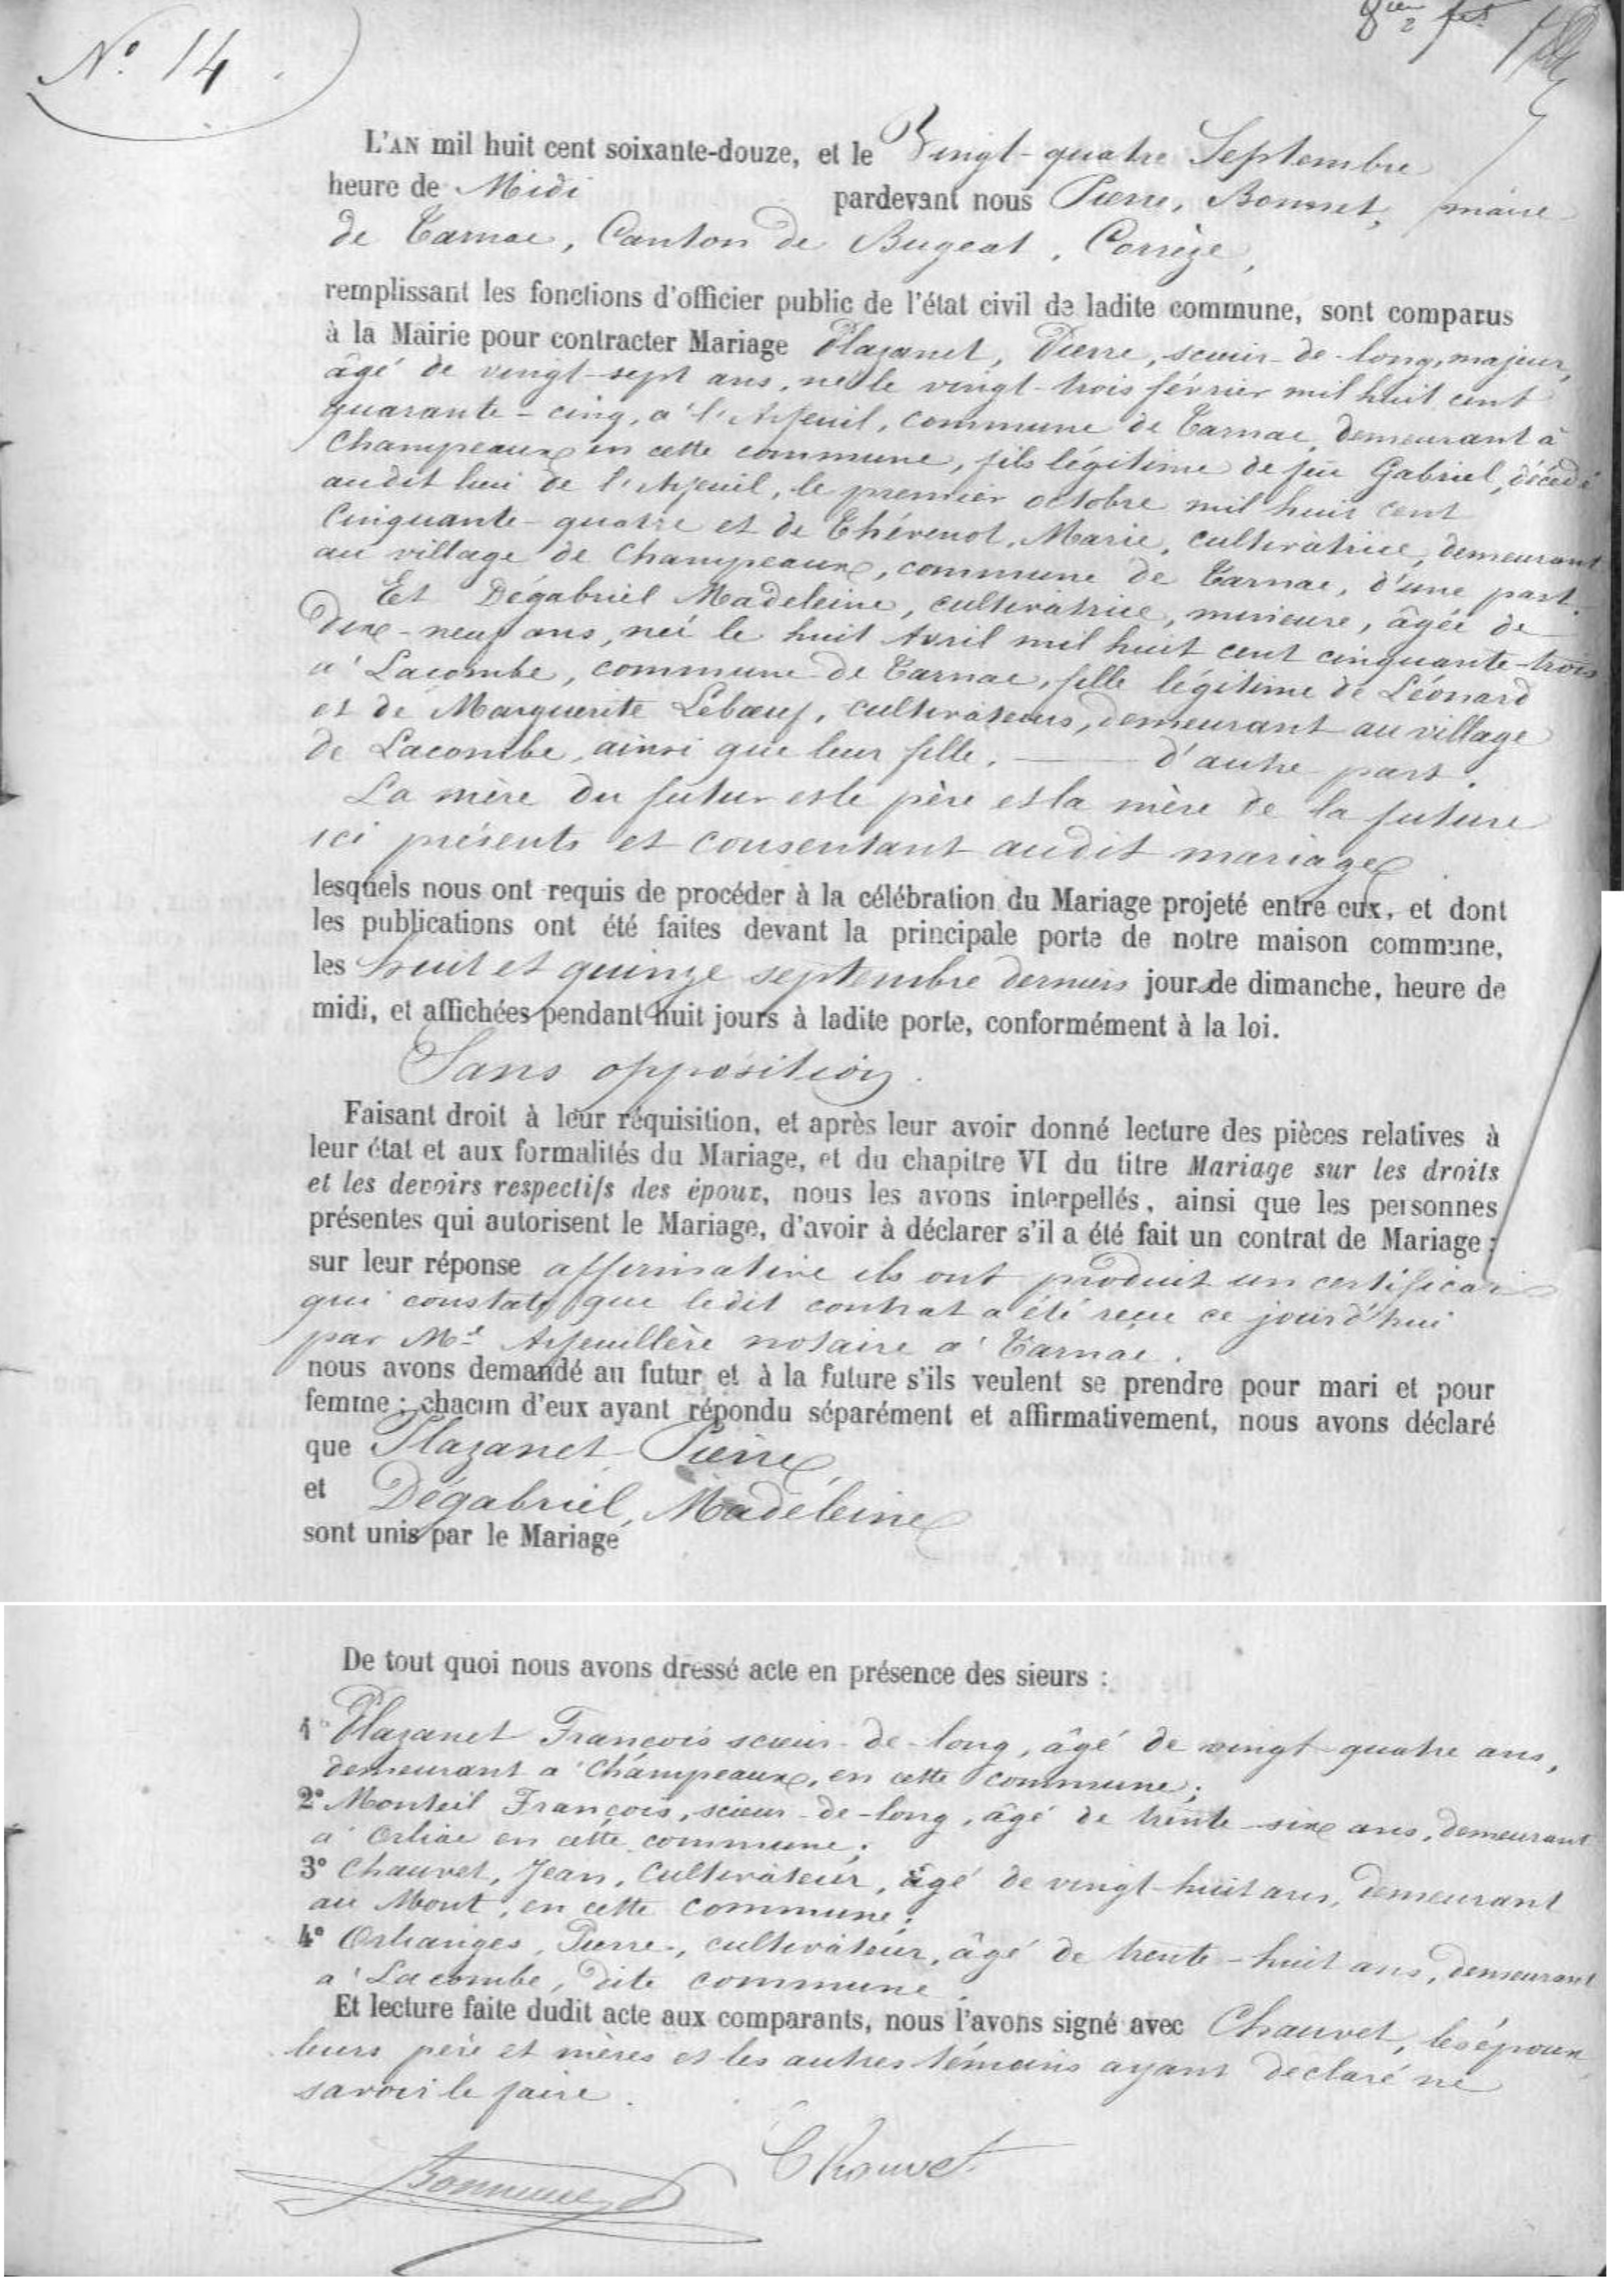 N° 14
L'AN mil huit cent soixante-douze, et le Vingt-quatre Septembre
heure de Midi pardevant nous Pierre, Bonnet, maire
de Tarnac, Canton de Bugeat, Corrèze,
remplissant les fonctions d'officier public de l'état civil de ladite commune, sont comparus
à la Mairie pour contracter Mariage Plazanet, Pierre, scieur-de-long, majeur,
âgé de vingt-sept ans, né le vingt-trois février mil huit cent
quarante-cinq, à l'Arfeuil, commune de Tarnac, demeurant à
Champeaux en cette commune, fils légitime de feu Gabriel, décédé
audit lieu de l'Arfeuil, le premier octobre mil huit cent
Cinquante-quatre et de Thévenot, Marie, cultivatrice, demeurant
au village de Champeaux, commune de Tarnac, d'une part.
Et Dégabriel Madeleine, cultivatrice, mineure, âgée de
Dix-neuf ans, née le huit Avril mil huit cent cinquante-trois
à Lacombe, commune de Tarnac, fille légitime de Léonard
et de Marguerite Lebœuf, cultivateurs, demeurant au village
de Lacombe, ainsi que leur fille, d'autre part.
La mère du futur et le père et la mère de la future
ici présents et consentant audit mariage
lesquels nous ont requis de procéder à la célébration du Mariage projeté entre eux, et dont
les publications ont été faites devant la principale porte de notre maison commune,
les huit et quinze septembre derniers jours de dimanche, heure de
midi, et affichées pendant huit jours à ladite porte, conformément à la loi.
Sans opposition.
Faisant droit à leur réquisition, et après leur avoir donné lecture des pièces relatives à
leur état et aux formalités du Mariage, et du chapitre VI du titre Mariage sur les droits
et les devoirs respectifs des époux, nous les avons interpellés, ainsi que les personnes
présentes qui autorisent le Mariage, d'avoir à déclarer s'il a été fait un contrat de Mariage;
sur leur réponse affirmative ils ont produit un certificat
qui constate que ledit contrat a été reçu ce jourd'hui
par Me Arfeuillère notaire à Tarnac.
nous avons demandé au futur et à la future s'ils veulent se prendre pour mari et pour
femme; chacun d'eux ayant répondu séparément et affirmativement, nous avons déclaré
que Plazanet Pierre
et Dégabriel, Madéleine
sont unis par le Mariage
De tout quoi nous avons dressé acte en présence des sieurs :
1° Plazanet François scieur-de-long, âgé de vingt quatre ans,
demeurant à Champeaux, en cette commune;
2° Monteil François, scieur-de-long, âgé de trente-six ans, demeurant
à Orliac en cette commune;
3° Chauvet, Jean, Cultivateur, âgé de vingt-huit ans, demeurant
au Mont, en cette commune;
4° Orlianges, Pierre, cultivateur, âgé de trente-huit ans, demeurant
à Lacombe, dite commune.
Et lecture faite dudit acte aux comparants, nous l'avons signé avec Chauvet, les époux,
leurs père et mères et les autres témoins ayant déclaré ne
savoir le faire.
Bonnet Chauvet